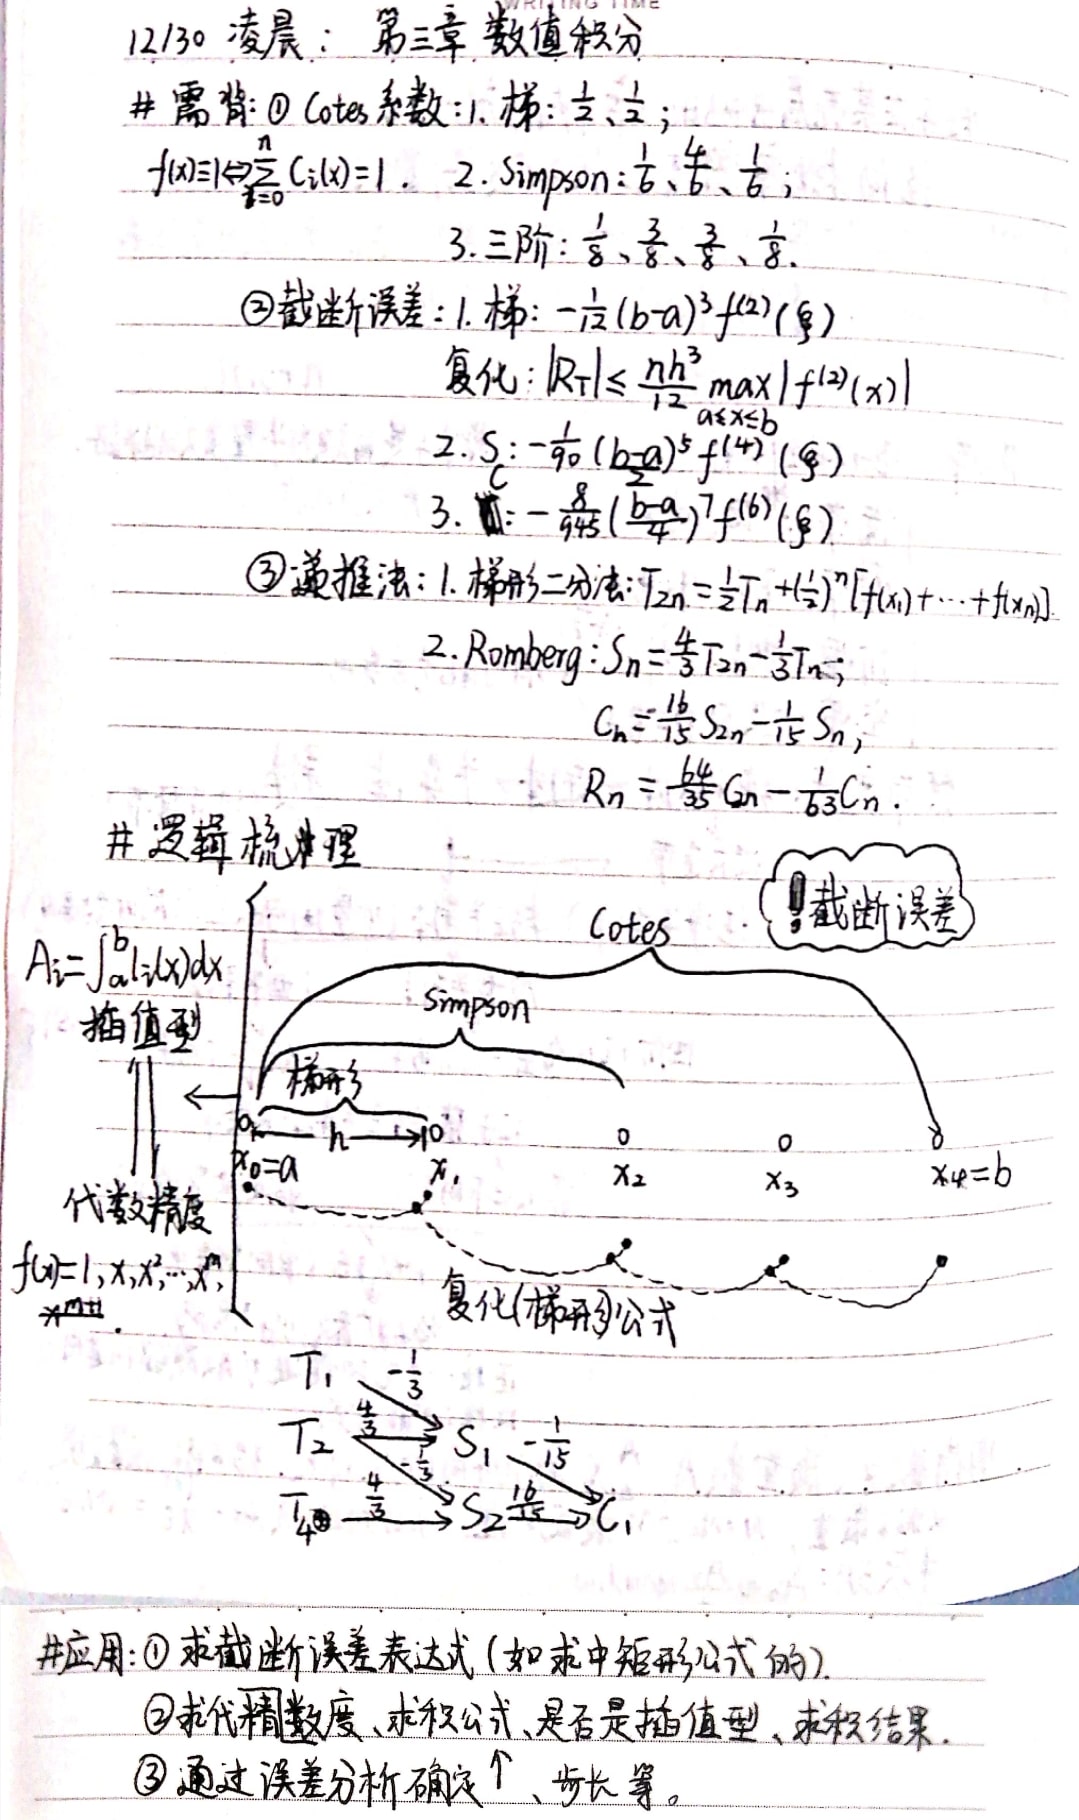 WRITING TIME
12/30 凌晨: 第三章 数值积分
# 需背:① Cotes系数:1. 梯: 1/2、1/2;
f(x)≡1⇔∑_{i=0}^{n} C_i(x)=1. 2. Simpson: 1/6、4/6、1/6;
3. 三阶: 1/8、3/8、3/8、1/8.
②截断误差: 1. 梯: -1/12 (b-a)³ f⁽²⁾(ξ)
复化: |R_T| ≤ nh³/12 max_{a≤x≤b} |f⁽²⁾(x)|
2. S: -1/90 (b-a/2)⁵ f⁽⁴⁾(ξ)
C
3. : -8/945 (b-a/4)⁷ f⁽⁶⁾(ξ)
③递推法: 1. 梯形二分法: T_{2n} = 1/2 T_n + (1/2)ⁿ [f(x₁)+…+f(x_n)].
2. Romberg: S_n = 4/3 T_{2n} - 1/3 T_n;
C_n = 16/15 S_{2n} - 1/15 S_n,
R_n = 64/35 C_{2n} - 1/63 C_n.
# 逻辑梳理
!截断误差
Cotes
A_i=∫_a^b l_i(x)dx
Simpson
插值型
梯形
h
x₀=a x₁ x₂ x₃ x₄=b
代数精度
f(x)=1,x,x²,…,x^m,
x^{m+1}.
复化(梯形)公式
T₁ -1/3
T₂ 4/3 -1/3 S₁ -1/15
T₄ 4/3 S₂ 16/15 C₁
#应用:① 求截断误差表达式(如求中矩形公式的).
②求代精数度、求积公式、是否是插值型、求积结果.
③通过误差分析确定↑、步长等。